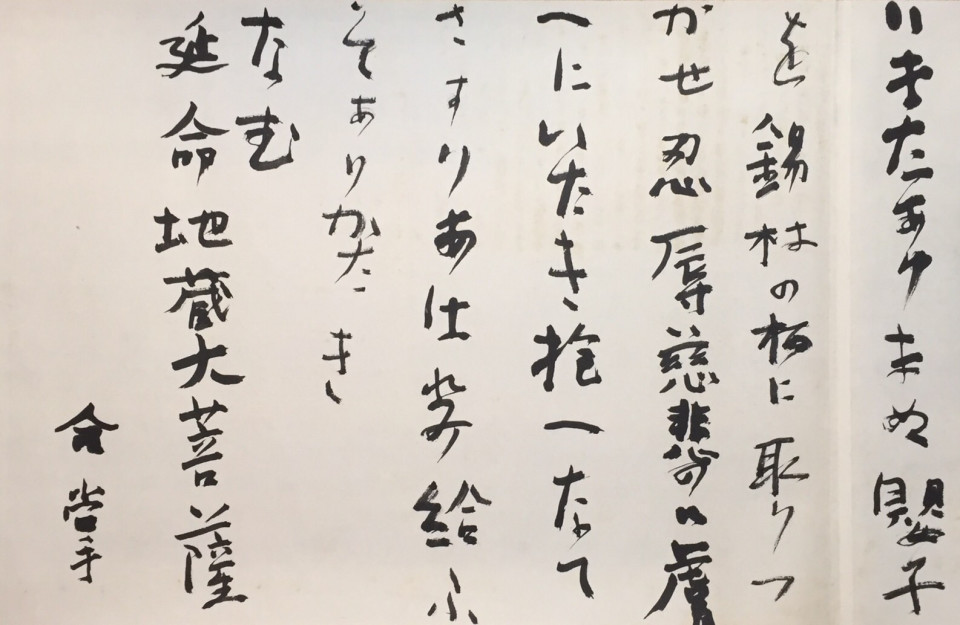 いまたあゆまぬ嬰子
を錫杖の柄に取りつ
かせ忍辱慈悲の膚
へにいたき抱へなて
さすりあはれみ給ふ
そありかたき
なむ
延命地蔵大菩薩
合掌